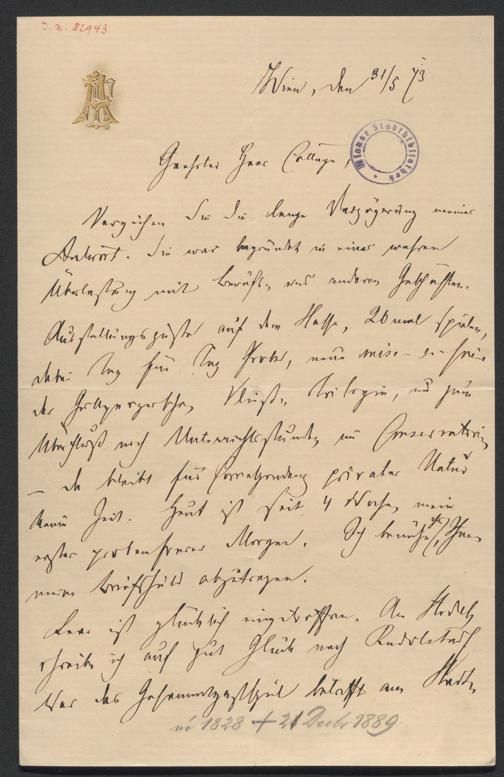 I.N. 82943
Wien, den 31/5 73
Wiener Stadtbibliothek
Geehrter Herr College,
Verzeihen Sie die lange Verzögerung meiner
Antwort. Sie war begründet in einer wahren
Überlastung mit Berufs- und anderen Geschäften.
Ausstellungsgäste auf dem Halse, 26 mal spielen,
dabei Tag für Tag Probe, neue mise-en-scène
der Grillparzerschen Vließ-Trilogie, und zum
Überfluß noch Unterrichtsstunden im Conservatorium
– da bleibt für Correspondenz privater Natur
keine Zeit. Heut ist seit 4 Wochen mein
erster probenfreier Morgen. Ich benütze ihn, Ihnen
meine Briefschuld abzutragen.
Lear ist glücklich eingetroffen. An
schreibe ich auf gut Glück nach Rudolstadt
Was das Gesammtgastspiel betrifft am
né 1828 + 21 Decbr 1889